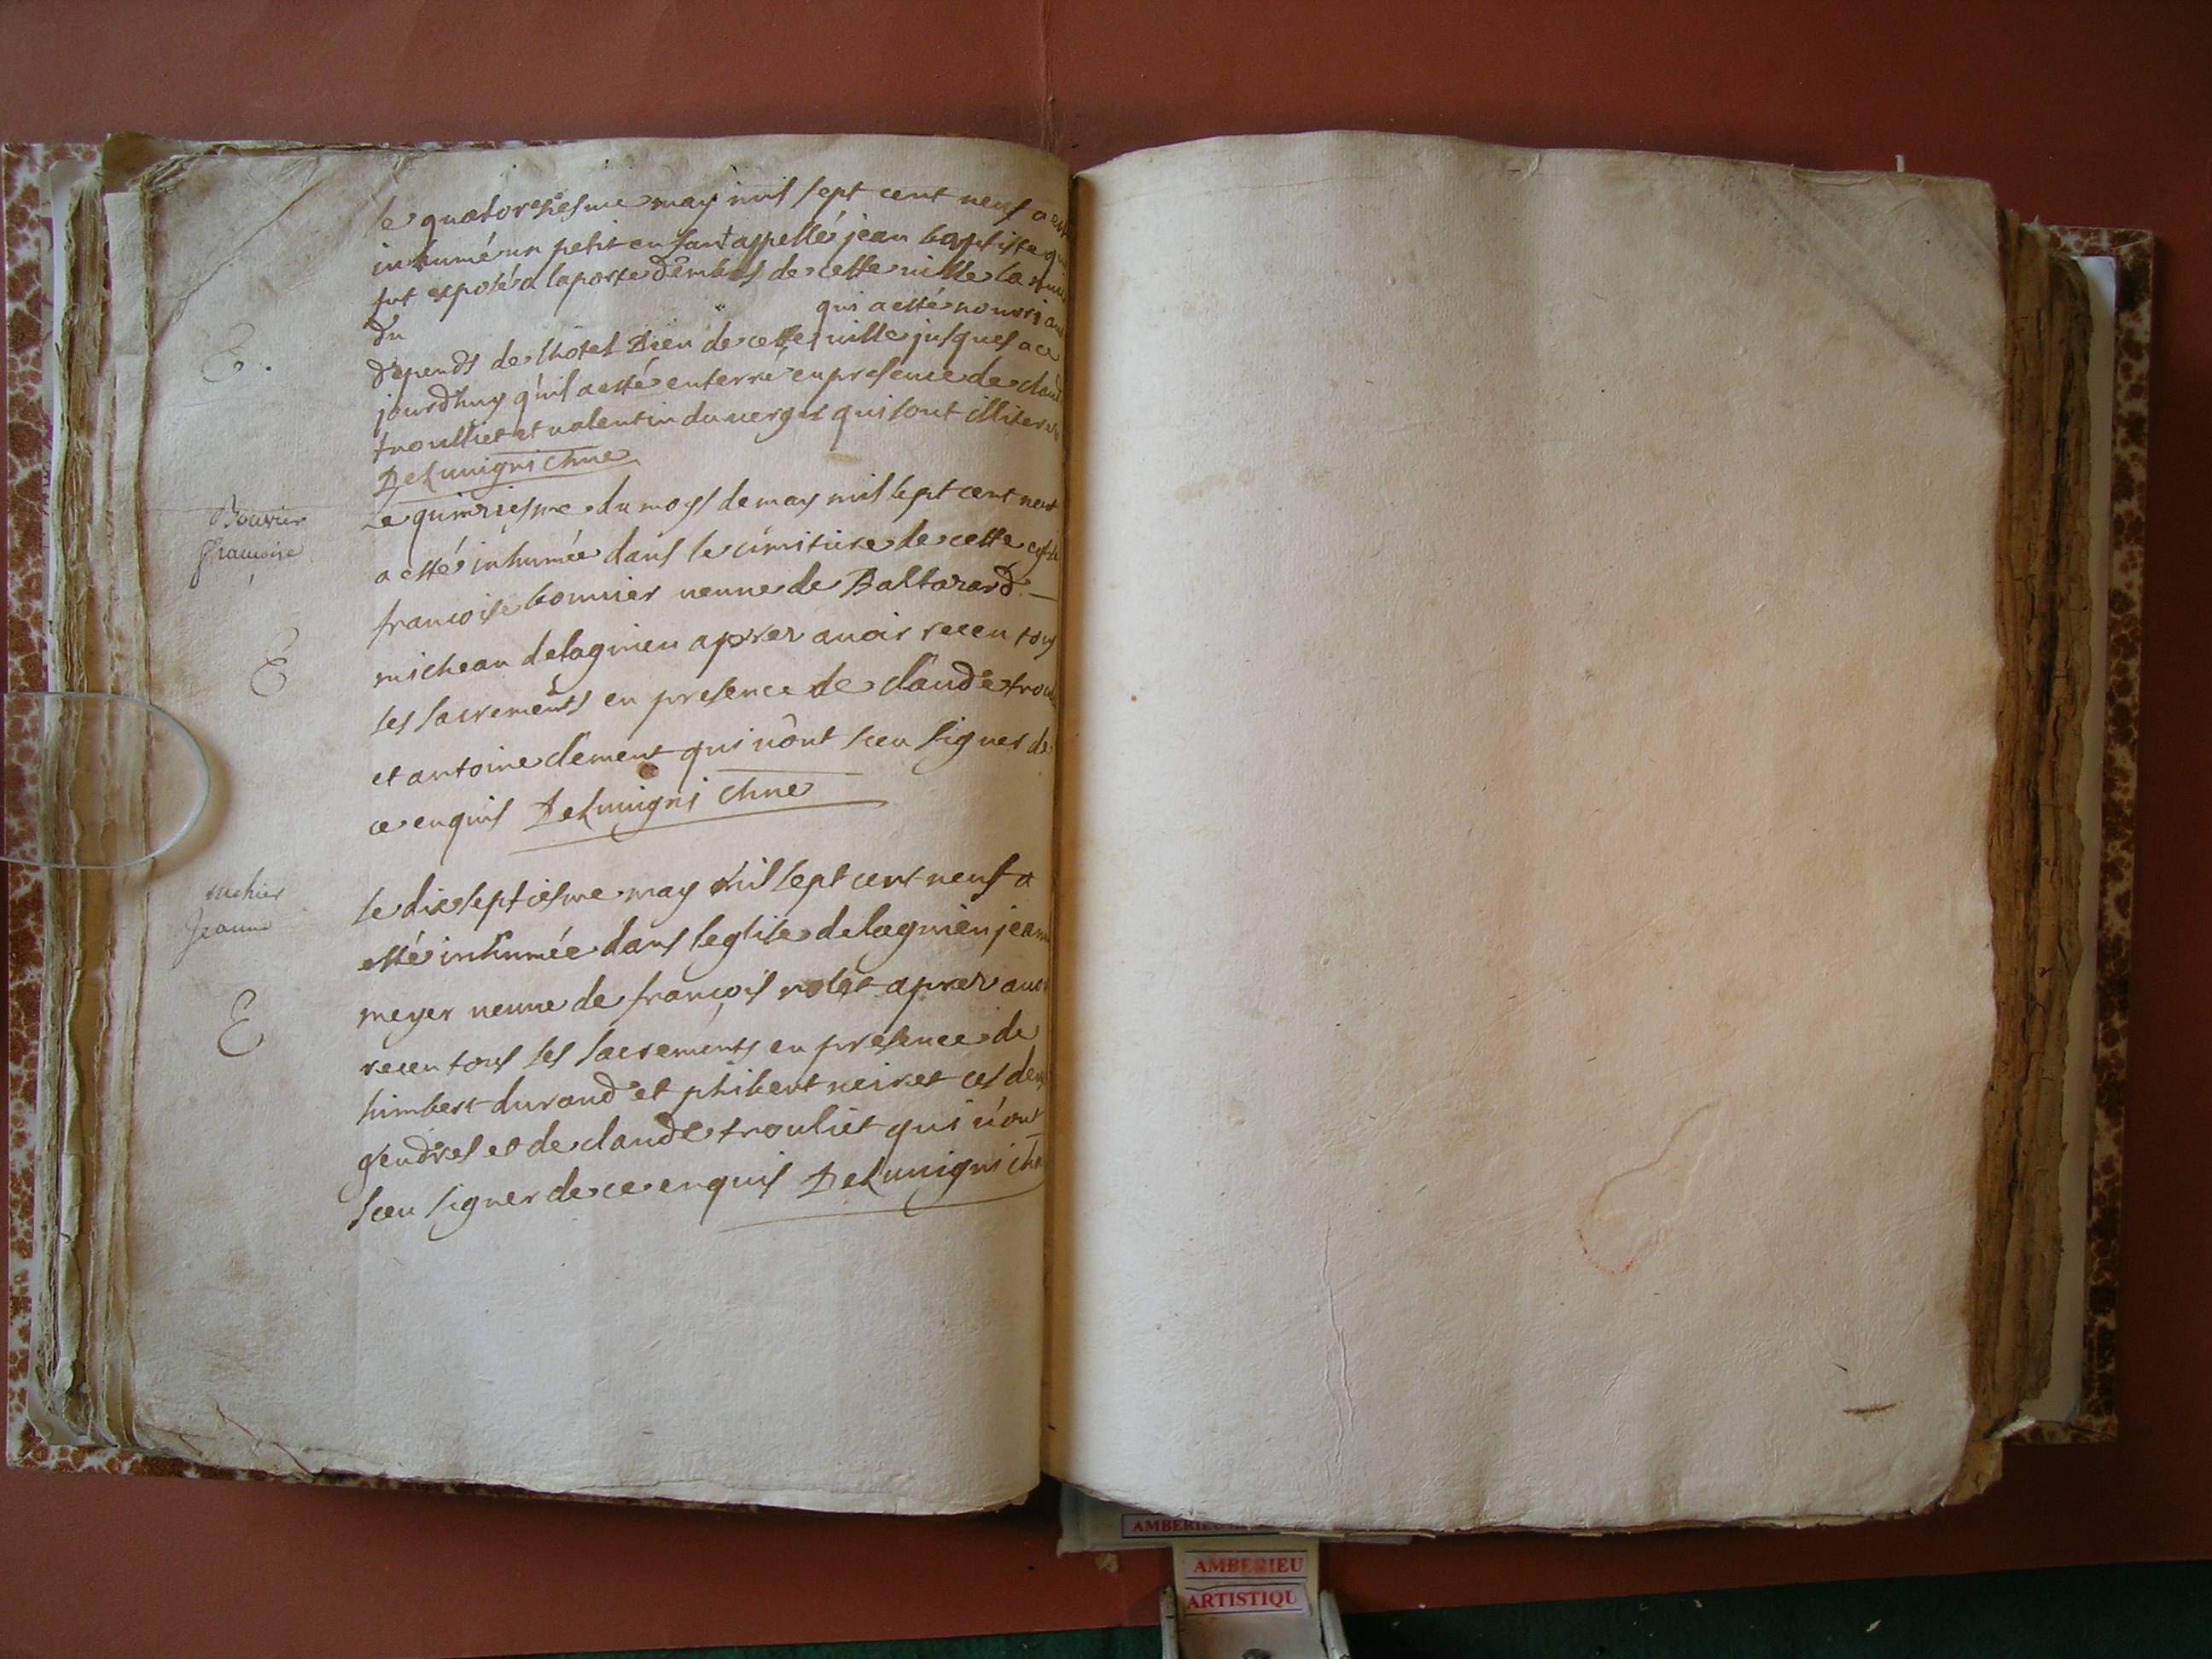 le quatorsiesme may mil sept cent neuf a esté
inhumé un petit enfant appellé jean baptiste qui
fut exposé a la porte d'embas de cette ville la nuit
du
qui a esté nourri aux
dépends de lhotel Dieu de cette ville jusques a ce
jourdhuy qu'il a esté enterré en presence de claude
troulliet et valentin duverger qui sont illiteres
E.
Bouvier
francoise
Le quinziesme du moys de may mil sept cent neuf
a esté inhumée dans le cimitiere de cette eglise
francoise bouvier veuve de Baltazard
micheau de lagnieu aprez avoir receu tous
les sacrements en presence de claude
et antoine clement qui n'ont sceu signer de
ce enquis
E
Jeanne
le dixseptiesme may mil sept cent neuf a
esté inhumée dans leglise de lagnieu jeanne
meyer veuve de françois rolet aprez avoir
receu tous les sacrements en presence de
humbert durand et philibert neiret ces deux
gendres et de claude trouliet qui n'ont
sceu signer de ce enquis
E
AMBERIEU
AMBERIEU
ARTISTIQU